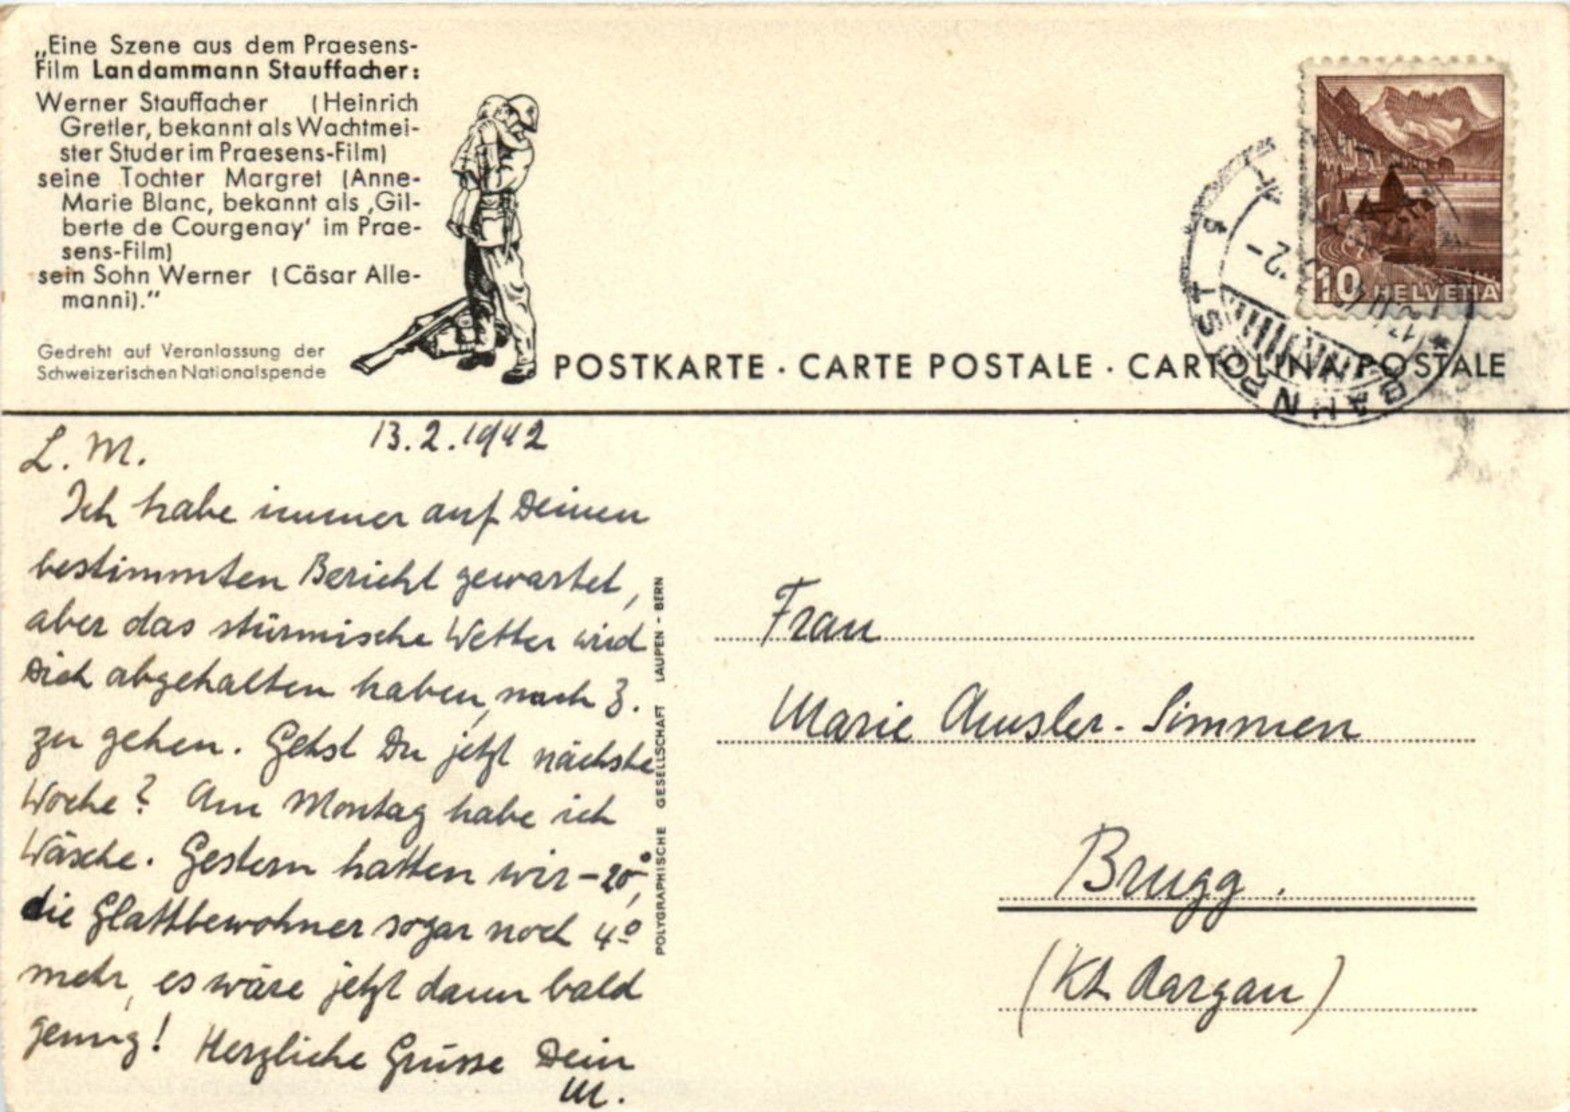 „Eine Szene aus dem Praesens-
Film Landammann Stauffacher:
Werner Stauffacher (Heinrich
Gretler, bekannt als Wachtmei-
ster Studer im Praesens-Film)
seine Tochter Margret (Anne-
Marie Blanc, bekannt als ‚Gil-
berte de Courgenay' im Prae-
sens-Film)
sein Sohn Werner (Cäsar Alle-
manni)."
Gedreht auf Veranlassung der
Schweizerischen Nationalspende
10 HELVETIA
BAHNPOST
POSTKARTE · CARTE POSTALE · CARTOLINA POSTALE
13.2.1942
L. M.
Ich habe immer auf Deinen
bestimmten Bericht gewartet,
aber das stürmische Wetter wird
Dich abgehalten haben, nach Z.
zu gehen. Gehst Du jetzt nächste
Woche? Am Montag habe ich
Wäsche. Gestern hatten wir -20°,
die Glattbewohner sogar noch 4°
mehr, es wäre jetzt dann bald
genug! Herzliche Grüsse Dein
M.
POLYGRAPHISCHE GESELLSCHAFT LAUPEN - BERN
Frau
Marie Amsler-Simmen
Brugg.
(Kt. Aargau)